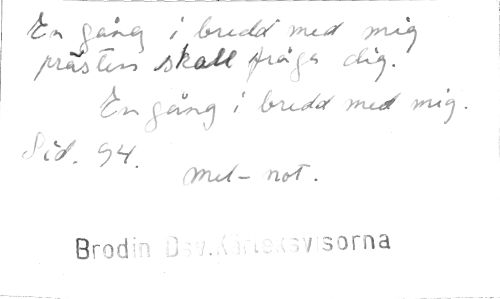 En gång i bredd med mig
prästen skall fråga dig.
En gång i bredd med mig.
Sid. 94.
mel- not.
Brodin Dsv. Kärleksvisorna